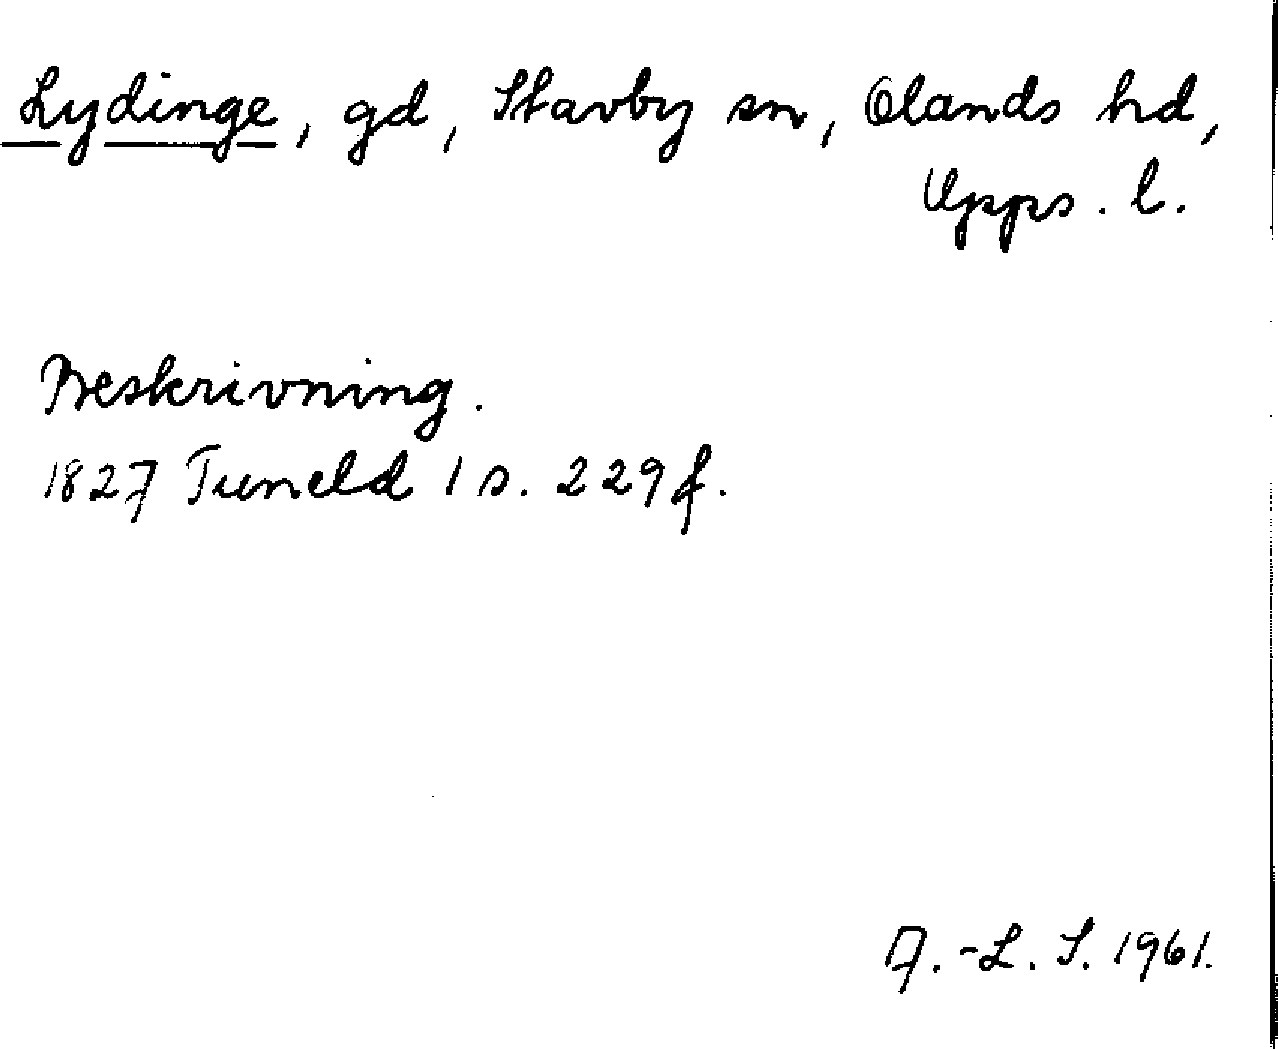 Lydinge, gd, Stavby sn, Olands hd,
Upps. l.
Beskrivning.
1827 Tuneld 1 s. 229 f.
A.-L. S. 1961.